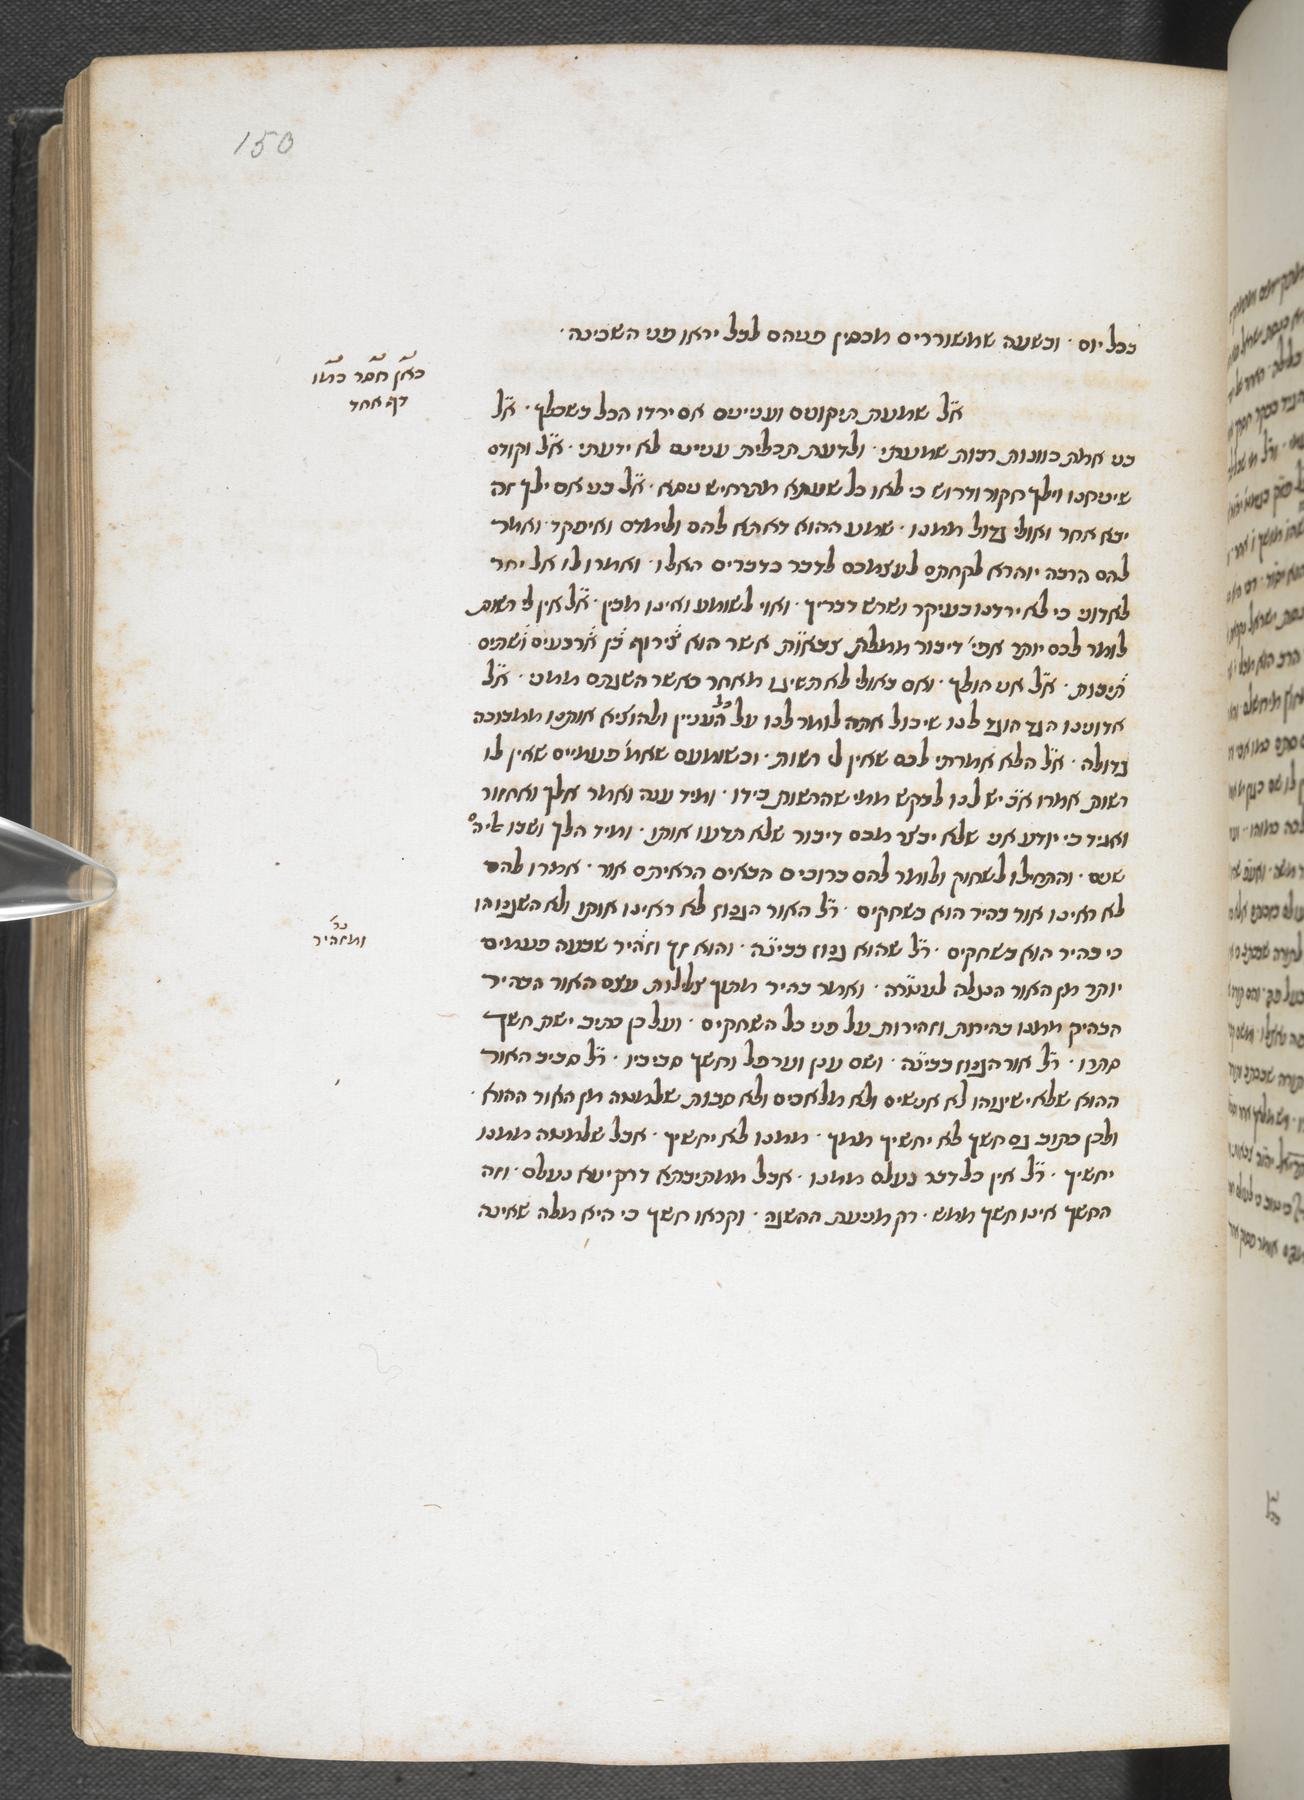 150
בכל יום · ובשעה שמשוררים מכסין פניהם לבל יראו פני השכינה ·
כאן חסר כמו
דף אחד
א"ל שמעת תיקונים ועניינים אם ירדו הכל בשכלך · א"ל
כני אמת כוונות רבות שמעתי · ולדעת תכלית עניינם לא ידעתי · א"ל וקודם
שינוחנו וילך חקור ודרוש כי לאו כל שעתא מתרחיש ניסא · א"ל בני אם ילך זה
יבא אחר ואולי גדול ממנו · שמע ההוא דאתא להם ולימדם ואיפקד · ואמר
להם הרבה יוהרא לקחתם לעצמכם לדבר בדברים האלו · ואמרו לו אל יחר
לאדוני כי לא ירדנו בעיקר ושרש דבריך · ואוי לשומע ואינו מבין · א"ל אין לי רשות
לומר לכם יותר אפי' דיבור ממלת צבאות אשר הוא צירוף בן ארבעים ושתים
תיבות · א"ל אני הולך · ואם באולי לא תשיגו מאחר כאשר השגתם ממני · א"ל
אדונינו הגד הוגד לנו שיכול אתה לומר לנו על כל העניין ולהוציא אותנו ממבוכה
גדולה · א"ל הלא אמרתי לכם שאין לי רשות · וכשומעם שאמ' פעמיים שאין לו
רשות אמרו א"כ יש לנו לבקש ממי שהרשות בידו · ומיד ענה ואמר אלך ואחזור
ואגיד כי יודע אני שלא יבצר מכם דיבור שלא תדעו אותו · ומיד הלך ושבו ליה
שנים · והתחילו לשחוק ולומר להם ברוכים הבאים הראיתם אור · אמרו להם
לא ראינו אור בהיר הוא בשחקים · ר"ל האור הגנוז לא ראינו אותו ולא השגנוהו
כי בהיר הוא בשחקים · ר"ל שהוא גנוז בבינה · והוא זך וזהיר שבעה פעמים
נ"ל
ומזהיר
יותר מן האור הנגלה למטרה · ואמר בהיר מתוך צלילות עצם האור הבהיר
הבהיק ממנו בהירות וזהירות על פני כל השחקים · ועל כן כתיב ישת חשך
סתרו · ר"ל אור הגנוז בבינה · ושם ענן וערפל וחשך סביביו · ר"ל סביב האור
ההוא שלא ישיגוהו לא אנשים ולא מלאכים ולא סבות שלמטה מן האור ההוא ·
ולכן כתוב גם חשך לא יחשיך ממך · ממנו לא יחשיך · אבל שלמטה ממנו
יחשיך · ר"ל אין כל דבר נעלם ממנו · אבל ממתיבתא דרקיעא נעלם · וזה
החשך אינו חשך ממש · רק מניעת ההשגה · וקראו חשך כי היא מלה שאינה